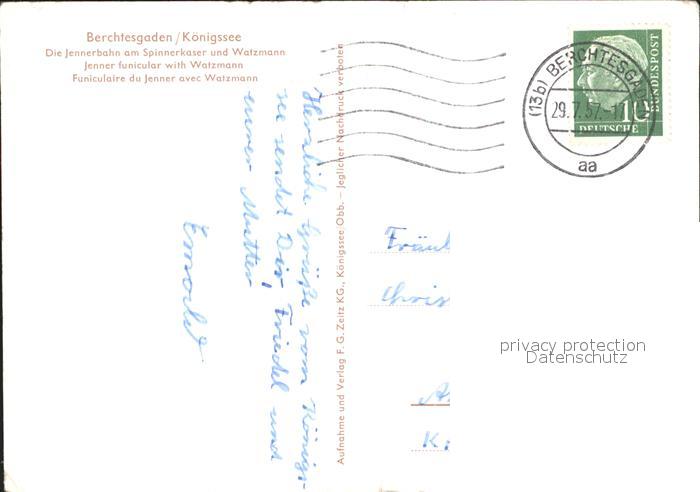 Berchtesgaden/Königssee
Die Jennerbahn am Spinnerkaser und Watzmann
Jenner funicular with Watzmann
Funiculaire du Jenner avec Watzmann
Herzliche Grüße vom Königs-
see sendet Dir, Friedel und
eurer Mutter
Aufnahme und Verlag F. G. Zeitz KG., Königssee/Obb. – Jeglicher Nachdruck verboten
(13b) BERCHTESGAD
29.7.57.-17
aa
10
DEUTSCHE
BUNDESPOST
Fräul
Chris
A
K.
privacy protection
Datenschutz